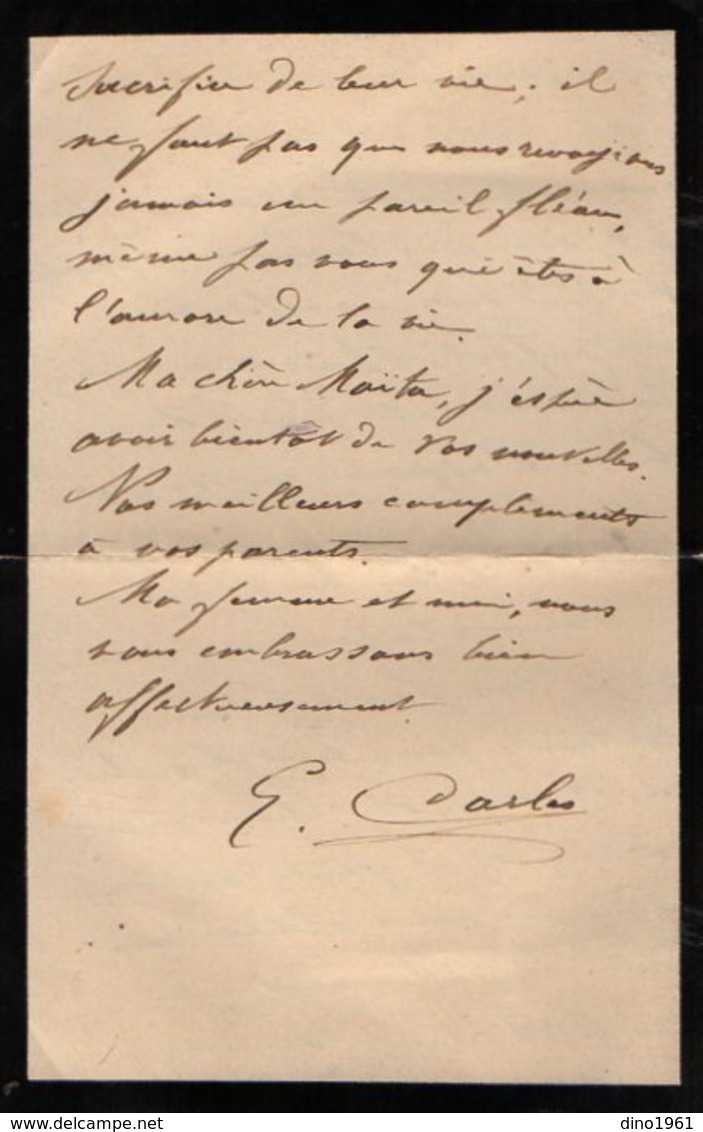 sacrifice de leur vie ; il
ne faut pas que nous revoyions
jamais un pareil fléau,
même pas vous qui êtes à
l'aurore de la vie.
Ma chère Maïta, j'espère
avoir bientôt de vos nouvelles.
Nos meilleurs compliments
à vos parents.
Ma femme et moi, nous
vous embrassons bien
affectueusement
E. Darles
www.delcampe.net
dino1961